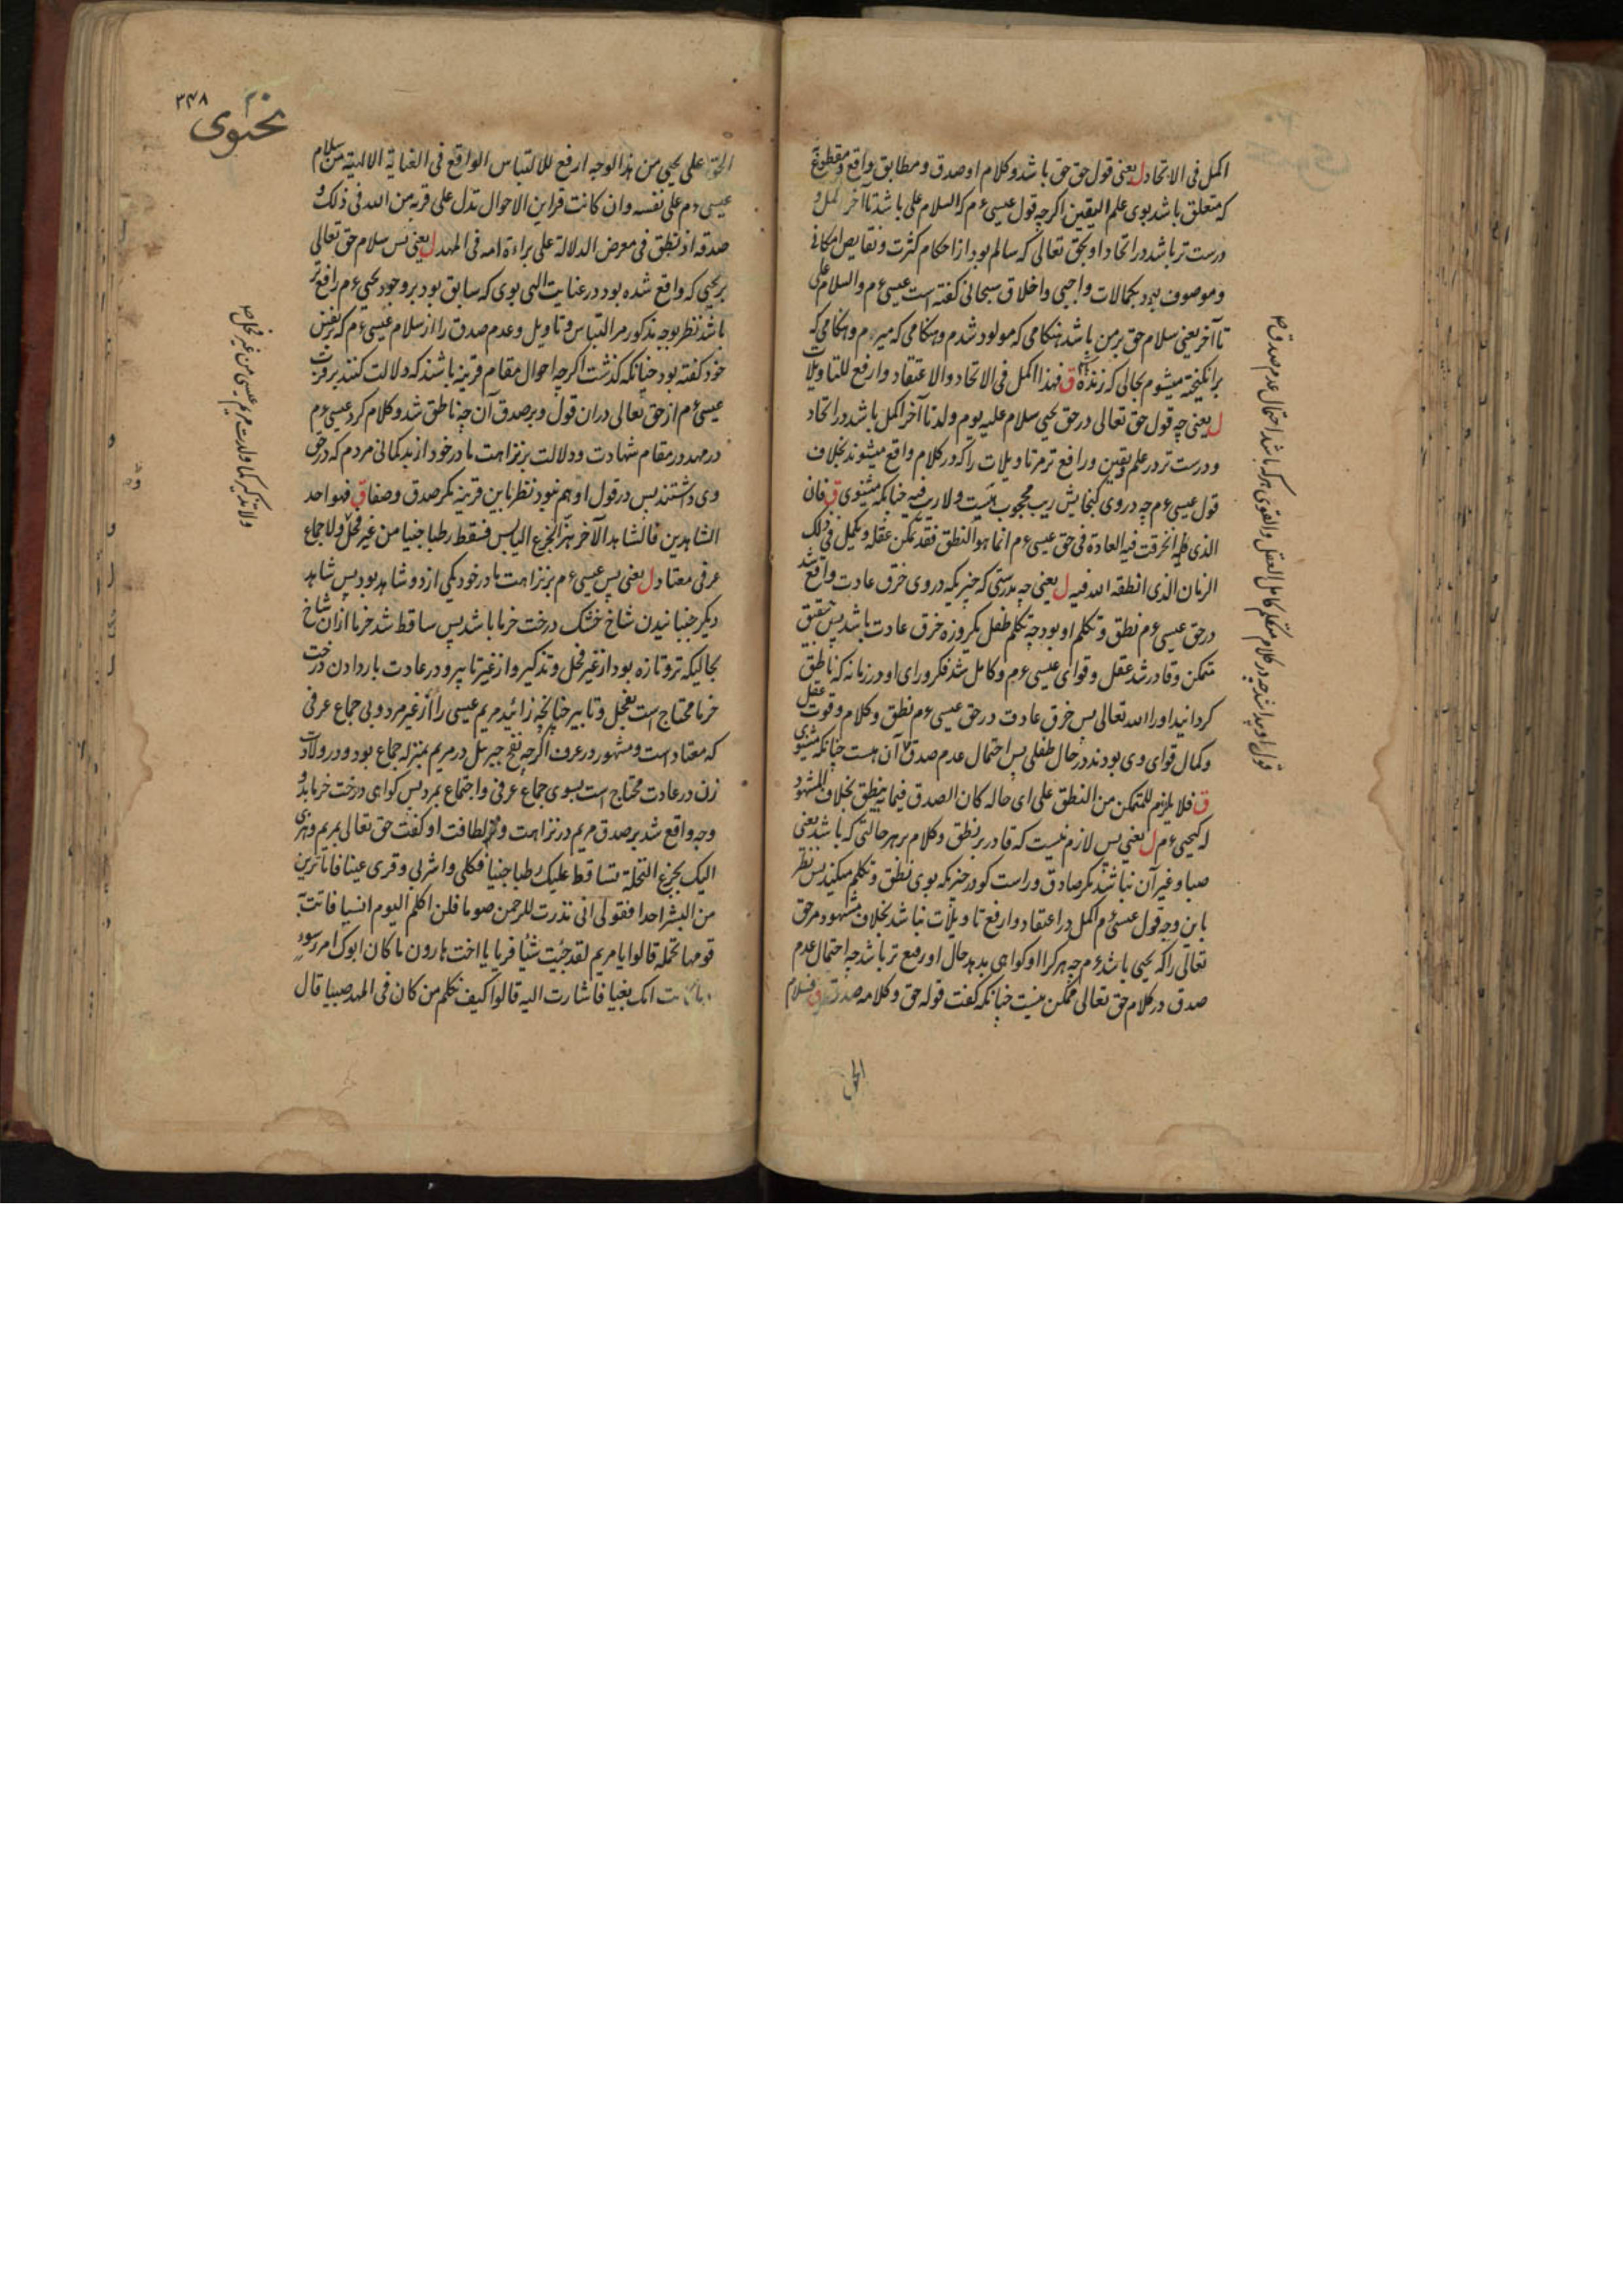 اکمل فی الاتحاد ل یعنی قول حق حق باشد و کلام او صدق و مطابق واقع و مقطوع
که متعلق باشد بوی علم الیقین اکرچه قول عیسی ءم که السلام علی باشد تا آخر اکمل و
درست تر باشد در اتحاد او بحق تعالی که سالم بود از احکام کثرت و نقایص امکانی
و موصوف بود بکمالات واجبی و اخلاق سبحانی کفته است عیسی ءم والسلام علی
تا آخر یعنی سلام حق بر من باشد هنکامی که مولود شدم و هنکامی که میرم و هنکامی که
برانکیخته میشوم بحالی که زنده ام ق فهذا اکمل فی الاتحاد والاعتقاد وارفع للتاویلات
ل یعنی چه قول حق تعالی در حق یحیی سلام علیه یوم ولد تا آخر اکمل باشد در اتحاد
و درست تر در علم و یقین و رافع تر مر تاویلات را که در کلام واقع میشوند بخلاف
قول عیسی ءم چه در وی کنجایش ریب محجوب هست ولا ریب فیه چنانکه میشنوی ق فان
الذی انخرقت فیه العادة فی حق عیسی ءم انما هو النطق فقد تمکن عقله و تکمل فی ذلک
الزمان الذی انطقه الله فیه ل یعنی چه بدرستی که چیزیکه در وی خرق عادت واقع شد
در حق عیسی ءم نطق و تکلم او بود چه تکلم طفل یکروزه خرق عادت باشد پس بتحقیق
متمکن و قادر شد عقل و قوای عیسی ءم و کامل شد فکر و رای او در زمانه که ناطق
کردانید او را الله تعالی پس خرق عادت در حق عیسی ءم نطق و کلام و قوت عقل
و کمال قوای وی بودند در حال طفلی پس احتمال عدم صدق آن هست چنانکه میشنوی
ق فلا یلزم للمتمکن من النطق علی ای حاله کان الصدق فیما به ینطق بخلاف المشهود
له کیحیی ءم ل یعنی پس لازم نیست که قادر بر نطق و کلام بر هر حالتی که باشد یعنی
صبا و غیر آن نباشد مکر صادق و راست کو در چیزیکه بوی نطق و تکلم میکند پس نظر
باین وجه قول عیسی ءم اکمل در اعتقاد و ارفع تاویلات نباشد بخلاف مشهود مر حق
تعالی را که یحیی باشد ءم چه هر کرا او کواهی بدهد حال او رفیع تر باشد چه احتمال عدم
صدق در کلام حق تعالی ممکن نیست چنانکه کفت قوله حق و کلامه صدق ق فسلام
الحق
قول او پیدا شد چه در کلام متکلم کامل العقل والقوی هر که باشد احتمال عدم صدق
نحوی
۳۴۸
الحق علی یحیی من هذا الوجه ارفع للالتباس الواقع فی العنایة الالهیة من سلام
عیسی ءم علی نفسه وان کانت قراین الاحوال تدل علی قربه من الله فی ذلک و
صدقه اذ نطق فی معرض الدلالة علی براءة امه فی المهد ل یعنی پس سلام حق تعالی
بر یحیی که واقع شده بود در عنایت الهی بوی که سابق بود بر وجود یحیی ءم رافع تر
باشد نظر بوجه مذکور مر التباس و تاویل و عدم صدق را از سلام عیسی ءم که بر نفس
خود کفته بود چنانکه کذشت اکرچه احوال مقام قرینه باشند که دلالت کنند بر قربت
عیسی ءم از حق تعالی در ان قول و بر صدق آن چه ناطق شد و کلام کرد عیسی ءم
در مهد در مقام شهادت و دلالت بر نزاهت مادر خود از بدکمانی مردم که در حق
وی داشتند پس در قول او هم نبود نظر باین قرینه مکر صدق و صفا ق فهو احد
الشاهدین فالشاهد الآخر هز الجذع الیابس فسقط رطبا جنیا من غیر فحل ولا جماع
عرفی معتاد ل یعنی پس عیسی ءم بر نزاهت مادر خود یکی از دو شاهد بود پس شاهد
دیکر جنبانیدن شاخ خشک درخت خرما باشد پس ساقط شد خرما از ان شاخ
بحالیکه تر و تازه بود از غیر فحل و تذکیر و از غیر تابیر و در عادت باردادن درخت
خرما محتاج است بفحل و تابیر چنانچه زائید مریم عیسی را از غیر مرد و بی جماع عرفی
که معتاد است و مشهور در عرف اکرچه نفخ جبرئیل در مریم بمنزله جماع بود و در ولادت
زن در عادت محتاج است بسوی جماع عرفی و اجتماع بمرد پس کواهی درخت خرما بدو
وجه واقع شد بر صدق مریم در نزاهت و لطافت او کفت حق تعالی بمریم وهزی
الیک بجذع النخلة تساقط علیک رطبا جنیا فکلی واشربی وقری عینا فاما ترین
من البشر احدا فقولی انی نذرت للرحمن صوما فلن اکلم الیوم انسیا فاتت به
قومها تحمله قالوا یا مریم لقد جئت شئیا فریا یا اخت هارون ما کان ابوک امرء سوء
وما کانت امک بغیا فاشارت الیه قالوا کیف نکلم من کان فی المهد صبیا قال
ولا تذکیر کما ولدت مریم عیسی من غیر فحل